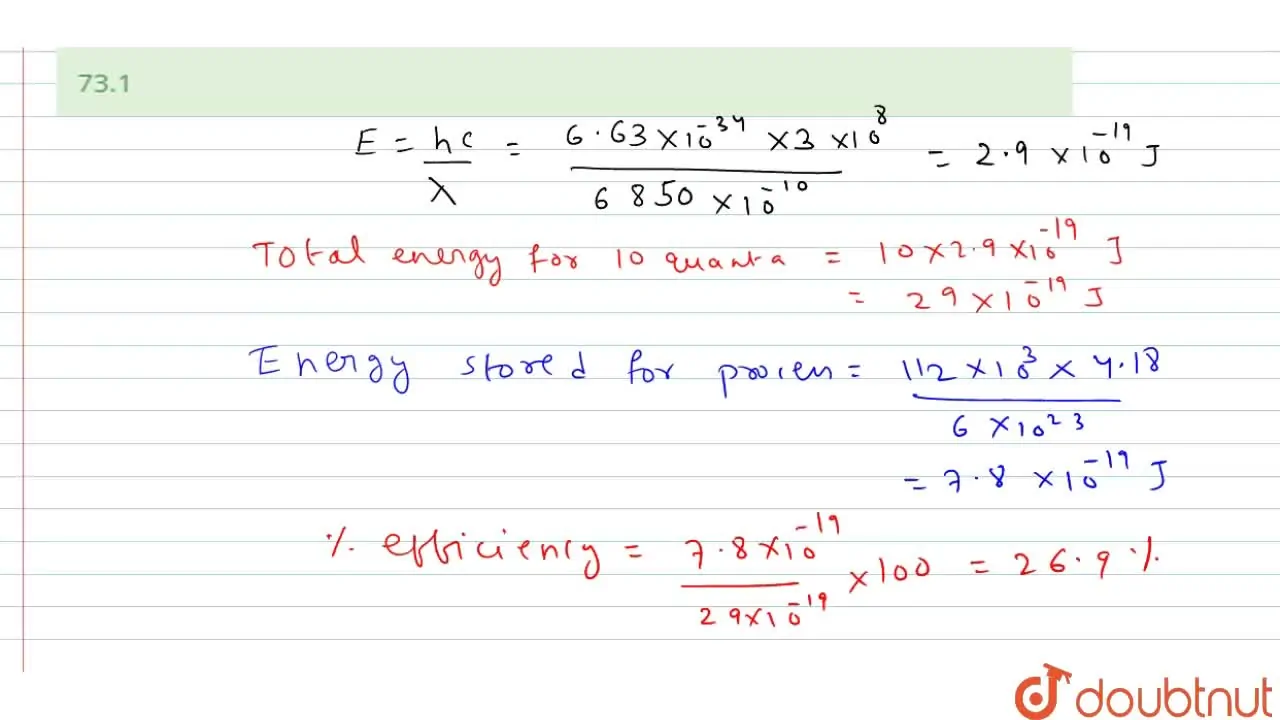 73.1
E = hc/λ = 6.63 × 10⁻³⁴ × 3 × 10⁸ / 6850 × 10⁻¹⁰ = 2.9 × 10⁻¹⁹ J
Total energy for 10 quanta = 10 × 2.9 × 10⁻¹⁹ J
= 29 × 10⁻¹⁹ J
Energy stored for process = 112 × 10³ × 4.18 / 6 × 10²³
= 7.8 × 10⁻¹⁹ J
% efficiency = 7.8 × 10⁻¹⁹ / 29 × 10⁻¹⁹ × 100 = 26.9 %
doubtnut